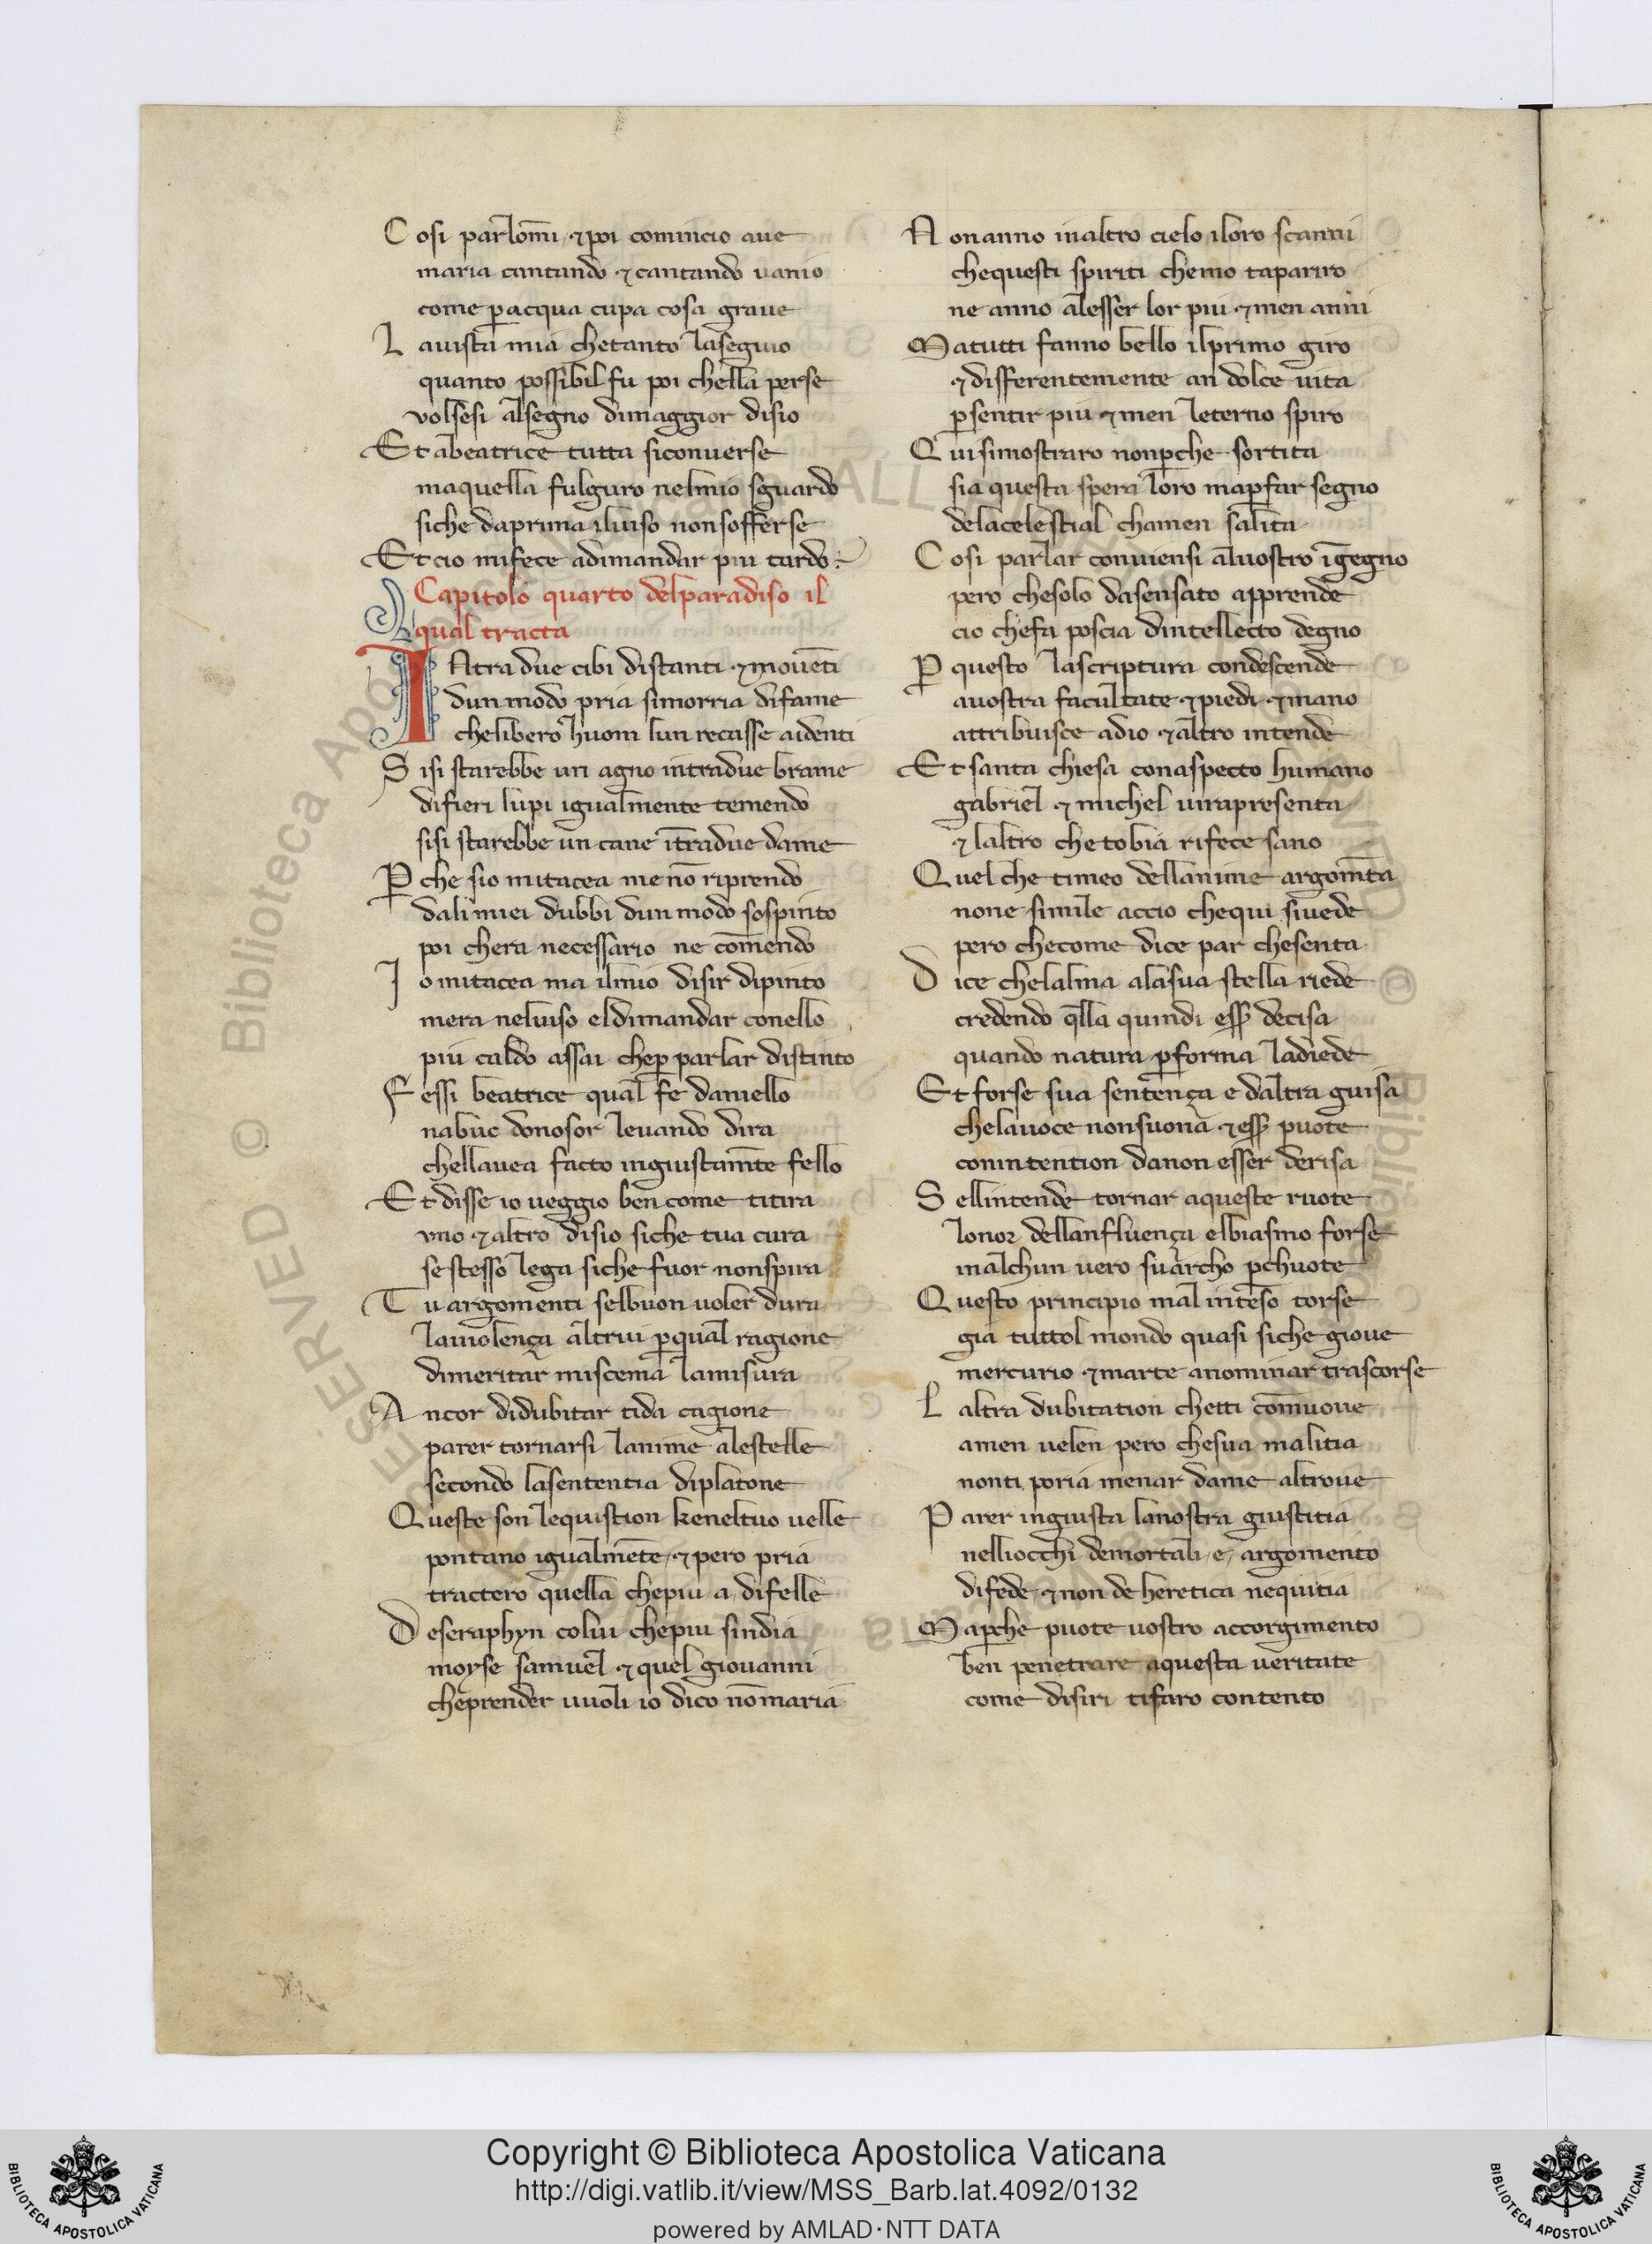 Cosi parlōmi ⁊ poi comincio aue
maria cantando ⁊ cantando uanio
come ꝑacqua cupa cosa graue
Lauista mia chetanto laseguio
quanto possibil fu poi chella perse
volsesi alsegno dimaggior disio
Et abeatrice tutta siconuerse
maquella fulguro nelmio sguardo
siche daprima iluiso nonsofferse
Et cio mifece adimandar piu tardo
Capitolo quarto delparadiso il
qual tracta
INtra due cibi distanti ⁊ mouēti
dunmodo pria simorria difame
chelibero huom lun recasse aidenti
Sisi starebbe un agno intradue brame
difieri lupi igualmente temendo
sisi starebbe un cane ītradue dame
Ꝑche sio mitacea me nō riprendo
dalimiei dubbi dun modo sospinto
poi chera necessario ne cōmendo
Io mitacea ma ilmio disir dipinto
mera neluiso eldimandar conello
piu caldo assai cheꝑ parlar distinto
Fessi beatrice qual fe daniello
nabuc donosor leuando dira
chellauea facto ingiustamēte fello
Et disse io ueggio ben come titira
vno ⁊ altro disio siche tua cura
se stesso lega siche fuor nonspira
Tu argomenti selbuon uoler dura
lauiolença altrui ꝑqual ragione
dimeritar miscema lamisura
Ancor didubitar tida cagione
parer tornarsi lanime alestelle
secondo lasententia diplatone
Queste son lequistion keneltuo uelle
pontano igualmēte ⁊ pero pria
tractero quella chepiu a difelle
Deseraphyn colui chepiu sindia
moyse samuel ⁊ quel giouanni
cheprender uuoli io dico nō maria
Nonanno inaltro cielo iloro scanni
chequesti spiriti chemo tapariro
ne anno alesser lor piu ⁊ men anni
Matutti fanno bello ilprimo giro
⁊ differentemente an dolce uita
ꝑsentir piu ⁊ men leterno spiro
Quisimostraro nonꝑche sortita
sia questa spera loro maꝑfar segno
delacelestial chamen salita
Cosi parlar conuiensi aluostro īgegno
pero chesolo dasensato apprende
cio chefa poscia dintellecto degno
Ꝑ questo lascriptura condescende
auostra facultate ⁊ piedi ⁊ mano
attribuisce adio ⁊ altro intende
Et santa chiesa conaspecto humano
gabriel ⁊ michel uirapresenta
⁊ laltro che tobia rifece sano
Quel che timeo dellanime argomēta
none simile accio chequi siuede
pero checome dice par chesenta
Dice chelalma alasua stella riede
credendo qlla quindi ess̄ decisa
quando natura ꝑforma ladiede
Et forse sua sentença e daltra guisa
chelauoce nonsuona ⁊ ess̄ puote
conintention danon esser derisa
Sellintende tornar aqueste ruote
lonor dellanfluença elbiasmo forse
inalchun uero suarcho ꝑchuote
Questo principio mal inteso torse
gia tuttol mondo quasi siche gioue
mercurio ⁊ marte anominar trascorse
Laltra dubitation chetti cōmuoue
amen uelen pero chesua malitia
nonti poria menar dame altroue
Parer ingiusta lanostra giustitia
nelliocchi demortali e argomento
difede ⁊ non de heretica nequitia
Maꝑche puote uostro accorgimento
ben penetrare aquesta ueritate
come disiri tifaro contento
Copyright © Biblioteca Apostolica Vaticana
http://digi.vatlib.it/view/MSS_Barb.lat.4092/0132
powered by AMLAD·NTT DATA